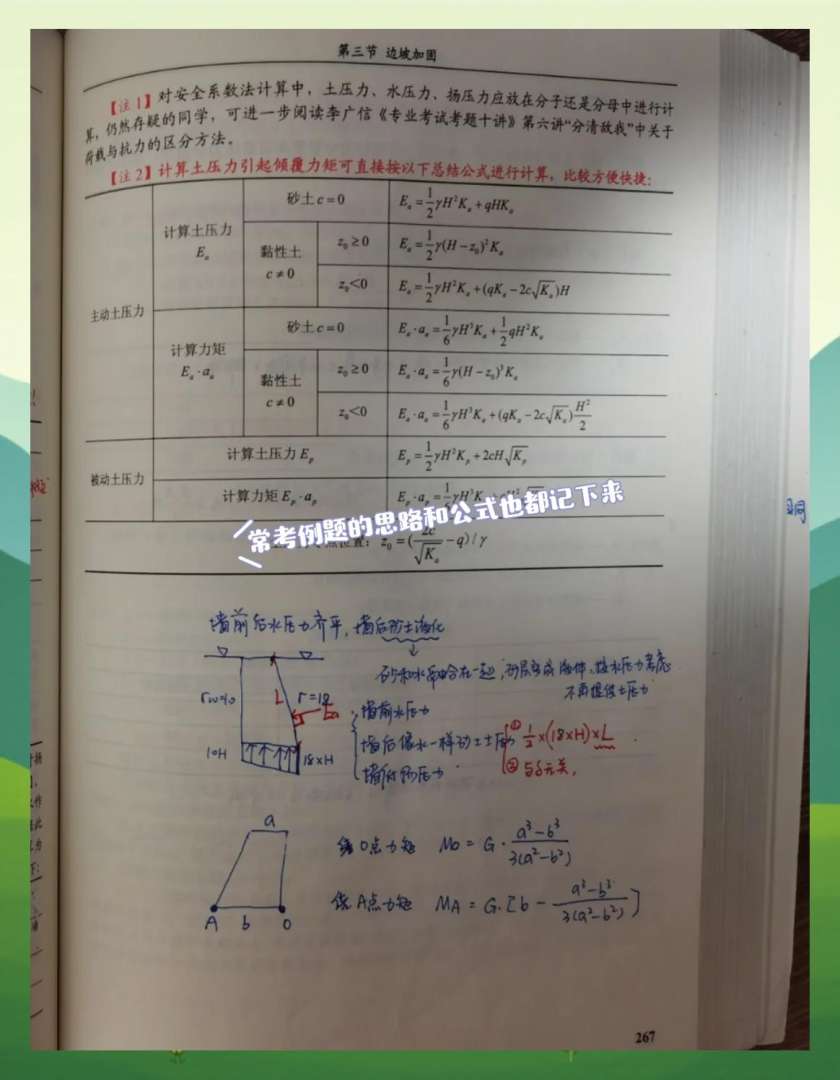 第三节 边坡加固
【注1】对安全系数法计算中，土压力、水压力、扬压力应放在分子还是分母中进行计
算，仍然存疑的同学，可进一步阅读李广信《专业考试考题十讲》第六讲“分清敌我”中关于
荷载与抗力的区分方法。
【注2】计算土压力引起倾覆力矩可直接按以下总结公式进行计算，比较方便快捷：
主动土压力
计算土压力
Eₐ
砂土 c = 0
Eₐ = 1/2 γH²Kₐ + qHKₐ
黏性土
c ≠ 0
z₀ ≥ 0
Eₐ = 1/2 γ(H − z₀)²Kₐ
z₀ < 0
Eₐ = 1/2 γH²Kₐ + (qKₐ − 2c√Kₐ)H
计算力矩
Eₐ·aₐ
砂土 c = 0
Eₐ·aₐ = 1/6 γH³Kₐ + 1/2 qH²Kₐ
黏性土
c ≠ 0
z₀ ≥ 0
Eₐ·aₐ = 1/6 γ(H − z₀)³Kₐ
z₀ < 0
Eₐ·aₐ = 1/6 γH³Kₐ + (qKₐ − 2c√Kₐ) H²/2
被动土压力
计算土压力 Eₚ
Eₚ = 1/2 γH²Kₚ + 2cH√Kₚ
计算力矩 Eₚ·aₚ
Eₚ·aₚ = 1/6 γH³K
常考例题的思路和公式也都记下来
z₀ = (2c/√Kₐ − q)/γ
墙前后水压力齐平，墙后砂土液化
砂和水混合在一起，砂层变成液体，按水压力考虑
不再提供土压力
rw=10
L
r=18
Ea
墙前水压力
10H
18×H
墙后像水一样的土压力
① 1/2×(18×H)×L
墙
② 与δ无关.
a
绕O点力矩 Mo = G · (a³−b³)/3(a²−b²)
绕A点力矩 MA = G.[b − (a³−b³)/3(a²−b²)]
A b O
267